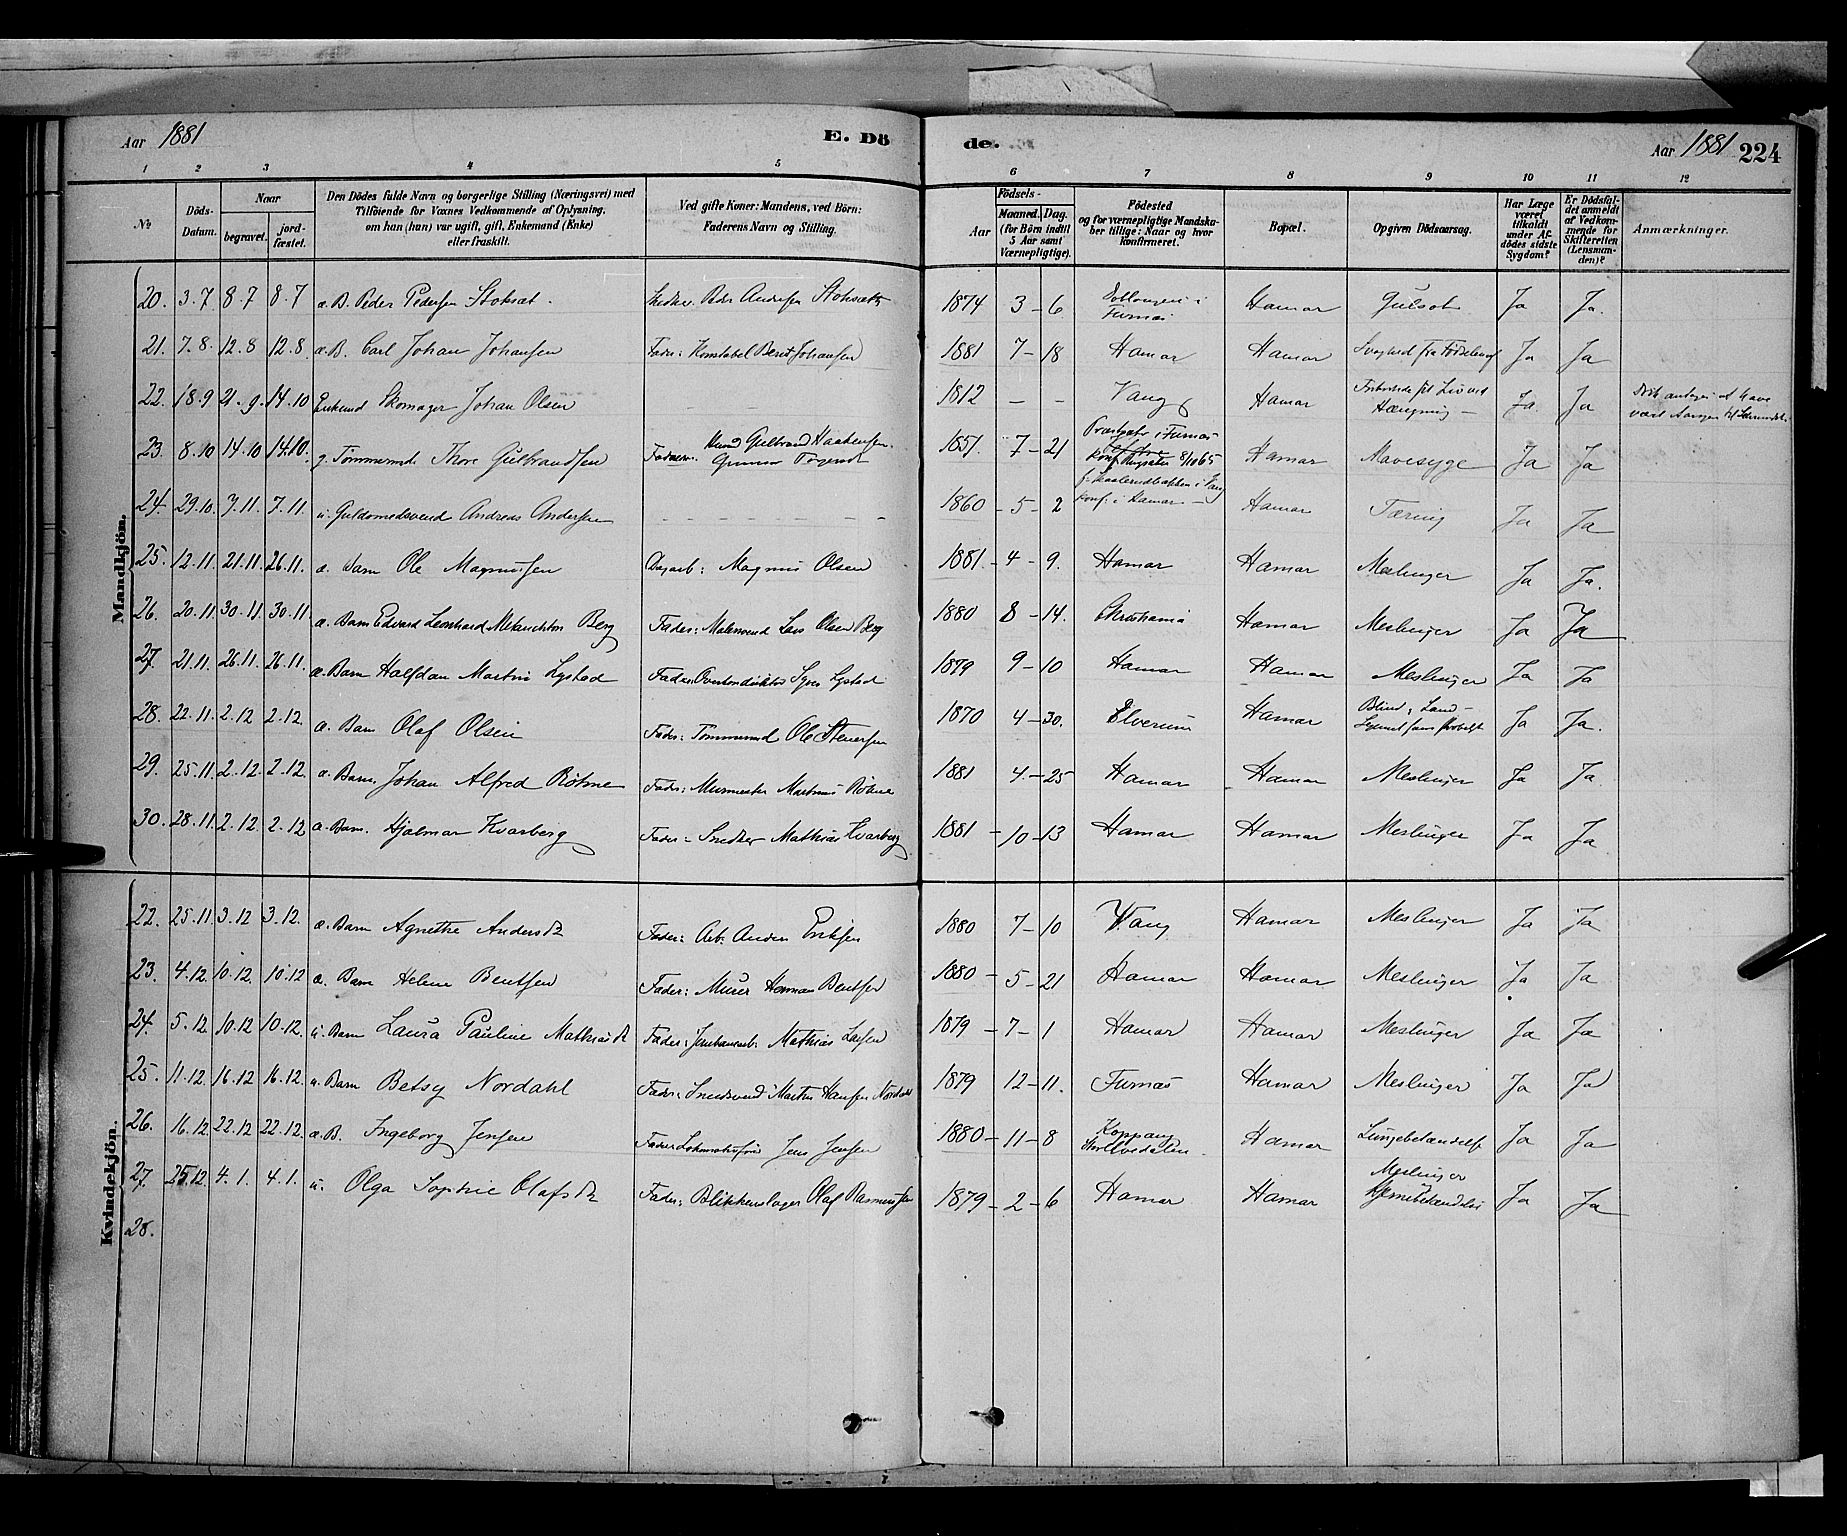 Aar 1881 E. Dö de. Aar 1881 224
1 2 3 4 5 6 7 8 9 10 11 12
№
Döds-Datum.
Naar
begravet.
jord-fæstet.
Den Dödes fulde Navn og borgerlige Stilling (Næringsvei) med
Tilföiende for Voxnes Vedkommende af Oplysning,
om han (hun) var ugift, gift, Enkemand (Enke)
eller fraskilt.
Ved gifte Koner: Mandens, ved Börn:
Faderens Navn og Stilling.
Födsels-
Aar
Maaned. Dag.
(for Börn indtil
5 Aar samt
Værnepligtige).
Födested
og for værnepligtige Mandska-
ber tillige: Naar og hvor
konfirmeret.
Bopæl.
Opgiven Dödsaarsag.
Har Læge
været
tilkaldt
under Af-
dödes sidste
Sygdom?
Er Dödsfal-
det anmeldt
af Vedkom-
mende for
Skifteretten
(Lensman-
den)?
Anmærkninger.
Mandkjön.
20. 3.7 8.7 8.7 æ. B. Peder Pedersen Stoksæt. Peder Andersen 1874 3-6 i Furnæs Hamar Gulsot Ja Ja.
21. 7.8. 12.8 12.8. æ. B. Carl Johan Johansen Fader: Konstabel Bernt Johansen 1881 7-18 Hamar Hamar Svaghed fra Fødselen af Ja Ja
22. 18.9 21.9. 14.10 Enkemd Skomager Johan Olsen – – – 1812 – – Vang Hamar Liv ved Hængning – Ja. Ja antages at have
været Aarsagen til
23. 8.10 14.10 14.10. g. Tømmermd Thore Gulbrandsen Gulbrand Haakensen 1851. 7-21 Præstesæter i Furnæs
konf. 8/10 65 Hamar Mavesyge Ja Ja
24. 29.10. 7.11. 7.11. u. Guldsmedsvend Andreas Andersen – – – 1860 - 5 - 2 i Vang
konf. i Hamar – Hamar Tæring Ja Ja
25. 12.11. 21.11. 26.11. æ. Barn Ole Magnussen Dagarb: Magnus Olsen 1881. - 4 - 9. Hamar Hamar Meslinger Ja Ja.
26. 20.11. 30.11. 30.11. æ. Barn Edvard Leonhard Melanchton Berg Fader: Malersvend Lars Olsen Berg 1880 8-14. Christiania Hamar Meslinger Ja Ja
27. 21.11. 26.11. 26.11. æ. Barn Halfdan Martin Lystad Fader: Overkonduktør Lystad 1879 9-10 Hamar Hamar Meslinger Ja Ja
28. 22.11. 2.12. 2.12. æ. Barn Olaf Olsen Fader: Tømmermd Ole Stenersen 1870 4-30. Elverum Hamar Blind; Ja Ja.
29. 25.11. 2.12. 2.12. æ. Barn. Johan Alfred Bøhmer Fader: Murmester Martinus 1881 4-25 Hamar Hamar Meslinger Ja Ja
30. 28.11. 2.12. 2.12. æ. Barn. Hjalmar Kvarberg Fader: Snedker Mathias Kvarberg 1881 - 10 - 13 Hamar Hamar Meslinger Ja Ja
Kvindekjön.
22. 25.11. 3.12 3.12. æ. Barn Agnethe Andersdt Fader: Arb. Anders Eriksen 1880 7-10 Vang Hamar Meslinger Ja Ja
23. 4.12. 10.12. 10.12 æ. Barn Helene Bentsen Fader: Murer Herman Bentsen 1880 - 5 - 21 Hamar Hamar Meslinger Ja Ja
24. 5.12. 10.12 10.12. u. Barn Laura Pauline Mathiasdt Fader: Jernbanearb. Mathias Larsen 1879 - 7 - 1 Hamar Hamar Meslinger Ja Ja
25. 11.12. 16.12. 16.12. æ. Barn Betsy Nordahl Fader: Martin Hansen Nordahl 1879 12-11. Furnæs Hamar Meslinger Ja Ja
26. 16.12. 22.12. 22.12. æ. B. Ingeborg Jensen Fader: Jens Jensen 1880 - 11 - 8 Koppang
Storelvedalen. Hamar Lungebetændelse Ja Ja
27. 25.12. 4.1. 4.1. u. Olga Sophie Olafsdt Fader: Blikkenslager Olaf Rasmussen 1879 - 2 - 6 Hamar Hamar Meslinger
Hjernebetændelse Ja Ja
28.